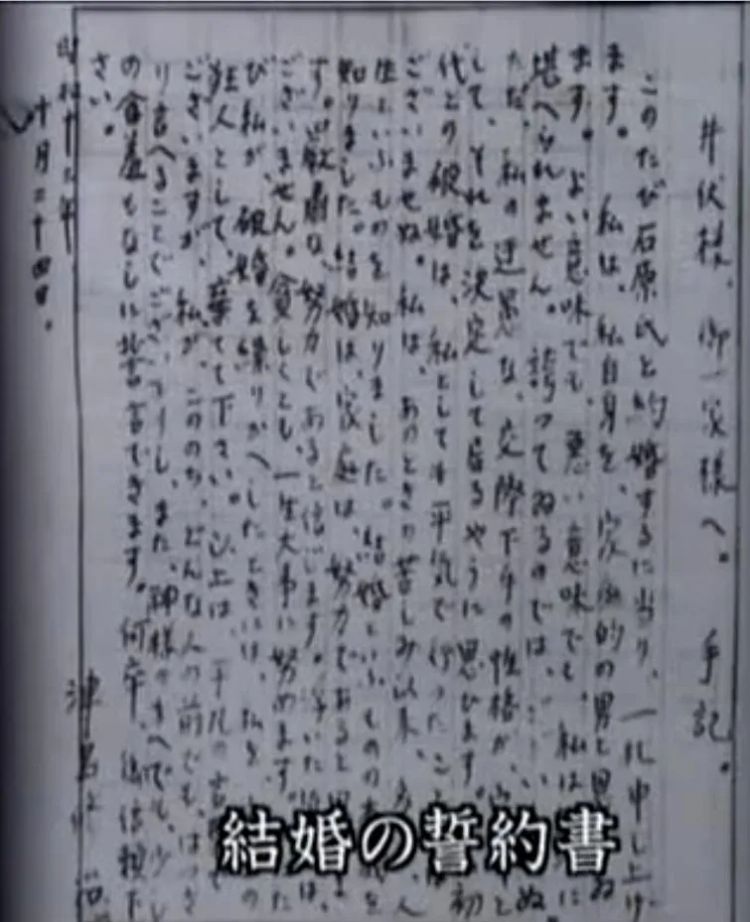 井伏様、御一家様へ。 手記。
このたび石原氏と約婚するに当り、一札申し上げ
ます。私は、私自身を、家庭的の男と思
ます。よい意味でも、悪い意味でも、私は に
堪へられません。誇つてゐるのでは、 ぬ
ただ、私の迂愚な、交際下手の性格が、 と
して、それを決定して居るやうに思ひます。 初
代との破婚は、私としても平気で行つたこ
ございませぬ。私は、あのときの苦しみ以来、 人
生といふものを知りました。結婚といふものの本義を
知りました。結婚は、家庭は、努力であると思
す。厳粛な、努力であると信じます。浮いた は、
ございません。貧しくとも、一生大事に努めます。 た
び私が、破婚を繰りかへしたときには、私を、 の
狂人として、棄てて下さい。以上は、平凡の言
ございますが、私が、こののち、どんな人の前でも、はつき
り言へることでございますし、また、神様のまへでも、少し
の含羞もなしに誓言できます。何卒、御信頼下
さい。
昭和十三年
十月二十四日。
津島修治
結婚の誓約書